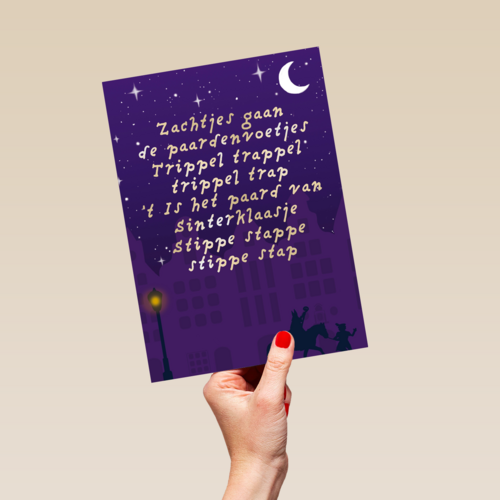 Zachtjes gaan
de paardenvoetjes
Trippel trappel
trippel trap
't Is het paard van
Sinterklaasje
Stippe stappe
stippe stap